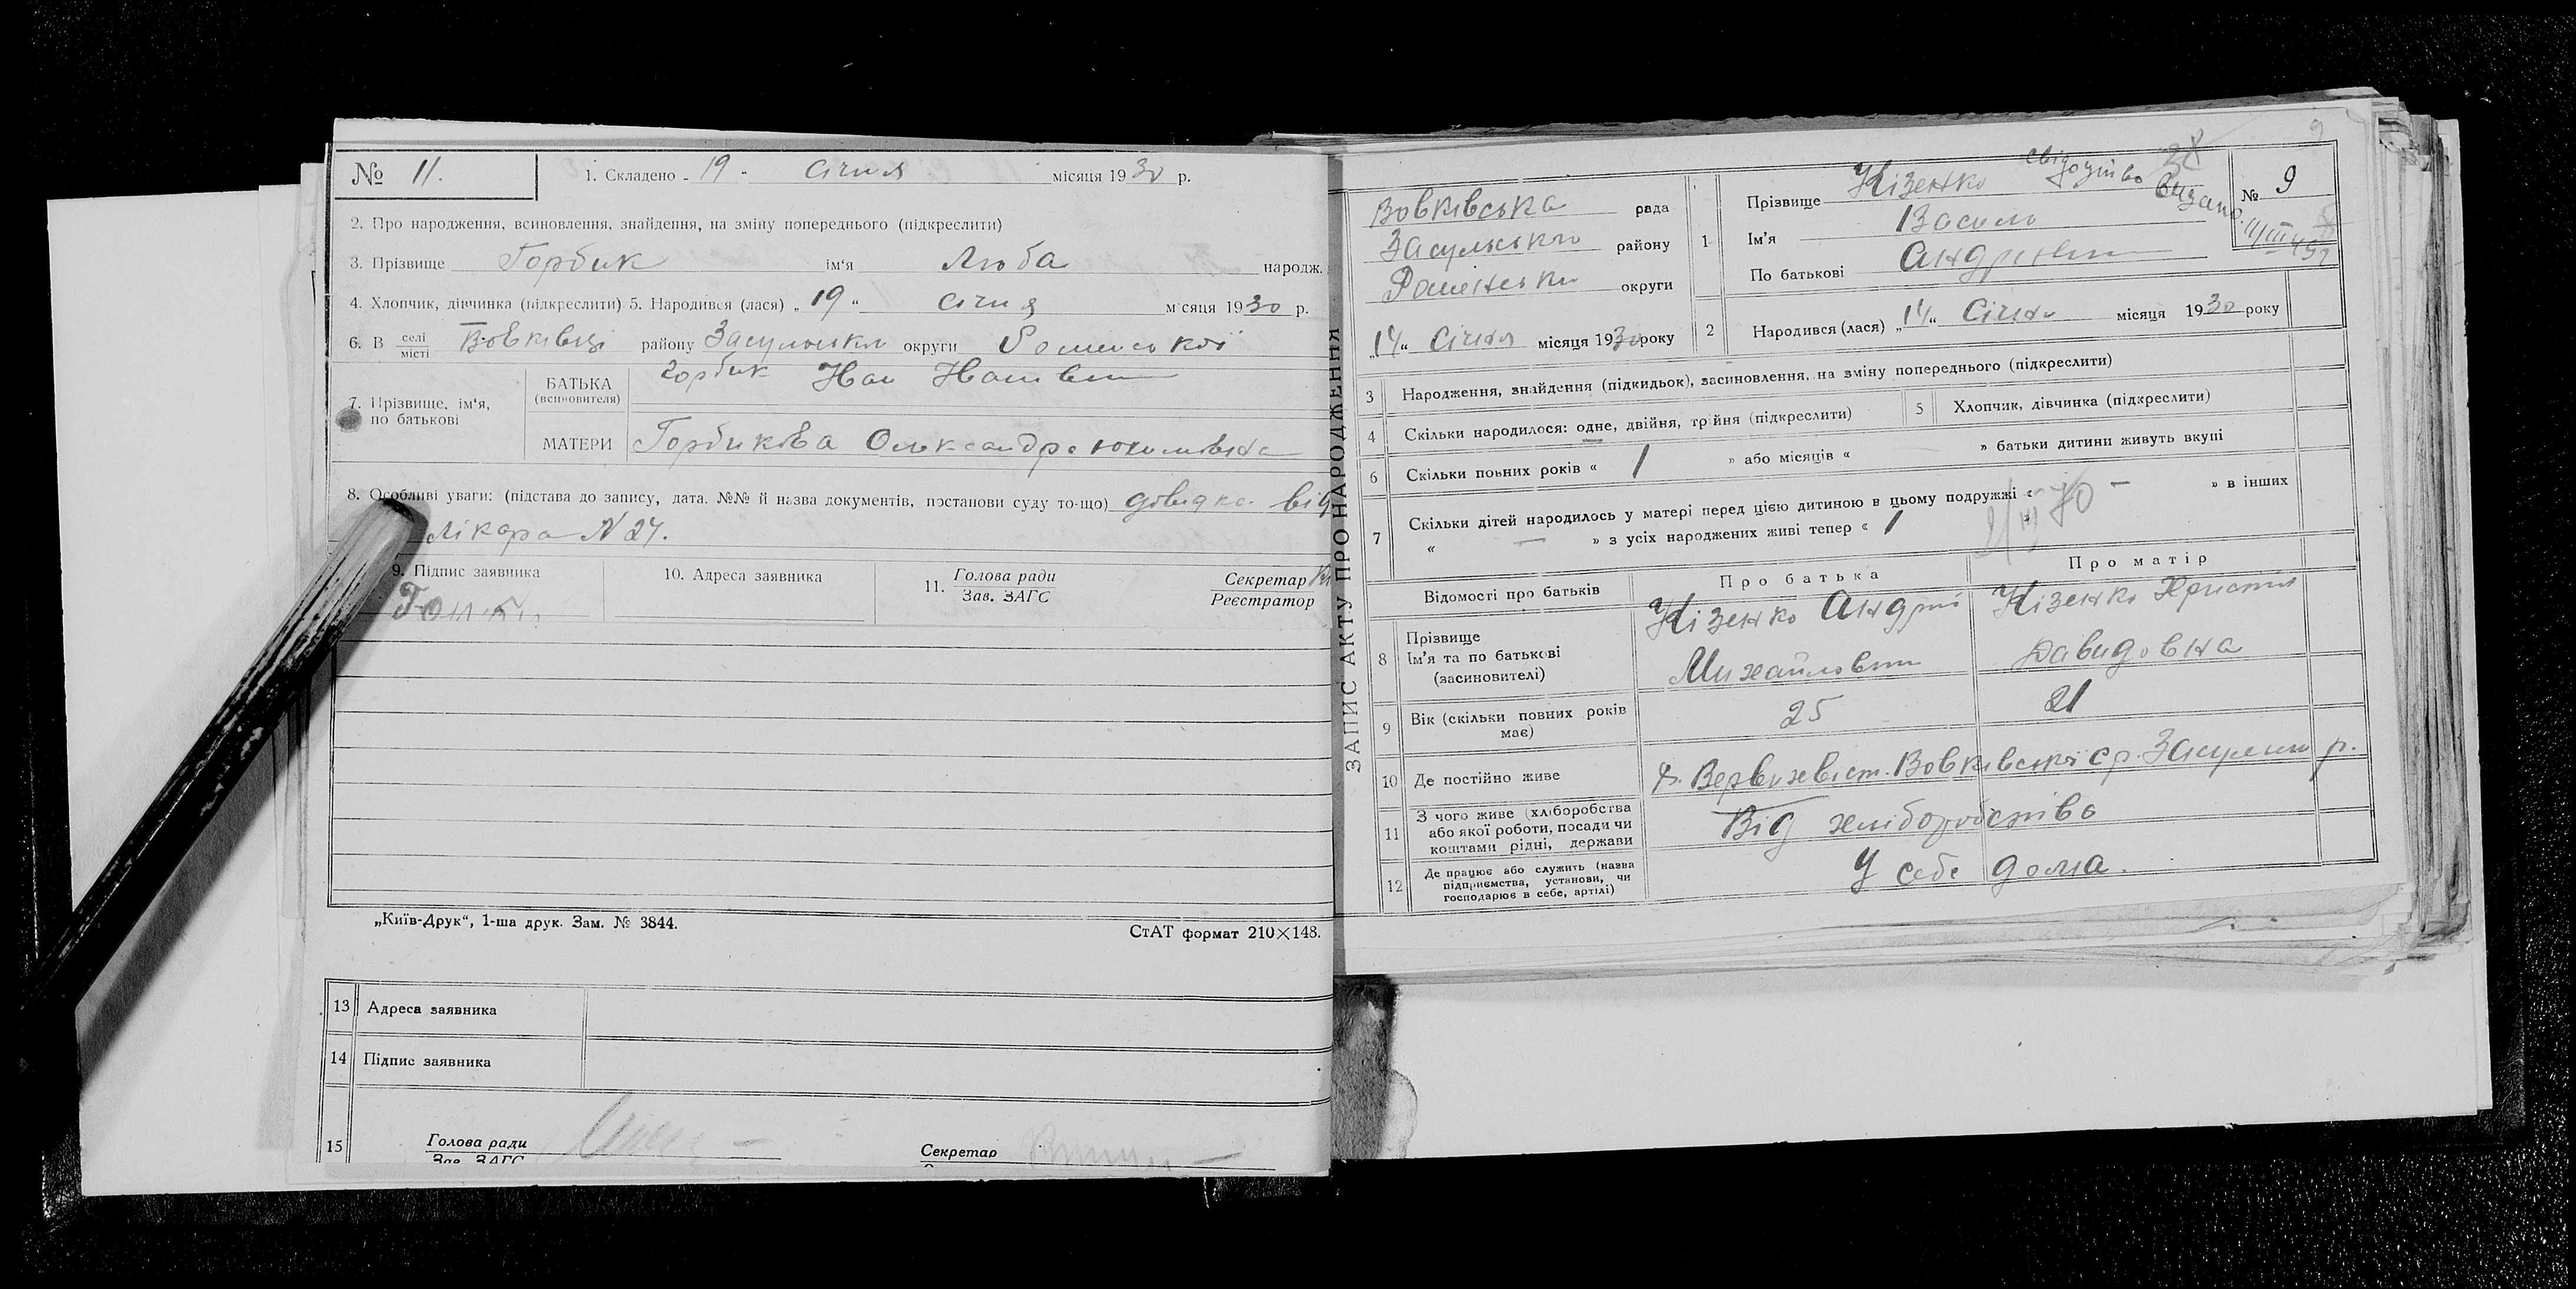 № 11.
1. Складено „ 19 “ січня місяця 1930 р.
2. Про народження, всиновлення, знайдення, на зміну попереднього (підкреслити)
3. Прізвище Горбик ім‘я Люба народж.
4. Хлопчик, дівчинка (підкреслити) 5. Народився (лася) „ 19 “ січня місяця 1930 р.
6. В селі Вовківці району Засульськ округи Роменської
місті
7. Прізвище, ім‘я, по батькові
БАТЬКА Горбик Иван
(всиновителя)
МАТЕРИ Горбикова Олександра Юхимівна
8. Особливі уваги: (підстава до запису, дата. №№ й назва документів, постанови суду то-що) довидка від
лікаря N 24.
9. Підпис заявника
10. Адреса заявника
11. Голова ради
Зав. ЗАГС
Секретар
Реєстратор
„Київ-Друк“, 1-ша друк. Зам. № 3844.
СтАТ формат 210×148.
13 Адреса заявника
14 Підпис заявника
15 Голова ради
Зав. ЗАГС
Секретар
ЗАПИС АКТУ ПРО НАРОДЖЕННЯ
9
Вовківська рада
Засульського району
Роменськи округи
„14“ Січня місяця 1930 року
1 Прізвище Кізенко
Ім’я Василь
По батькові Андрієвич
свідоцтво
видано
№ 9
2 Народився (лася) „14“ Січня місяця 1930 року
3 Народження, знайдення (підкидьок), засиновлення, на зміну попереднього (підкреслити)
4 Скільки народилося: одне, двійня, трійня (підкреслити)
5 Хлопчик, дівчинка (підкреслити)
6 Скільки повних років « 1 » або місяців « — » батьки дитини живуть вкупі
7 Скільки дітей народилось у матері перед цією дитиною в цьому подружжі « — » в інших
« — » з усіх народжених живі тепер « 1 »
Відомості про батьків
Про батька
Про матір
8 Прізвище
Ім’я та по батькові
(засиновителі)
Кізенко Андрій
Михайлович
Кізенко Христя
Давидовна
9 Вік (скільки повних років має)
25
21
10 Де постійно живе
Вовківської с.р. Засульск р.
11 З чого живе (хліборобства або якої роботи, посади чи коштами рідні, держави
Від хліборобства
12 Де працює або служить (назва підприємства, установи, чи господарює в себе, артілі)
У себе дома.